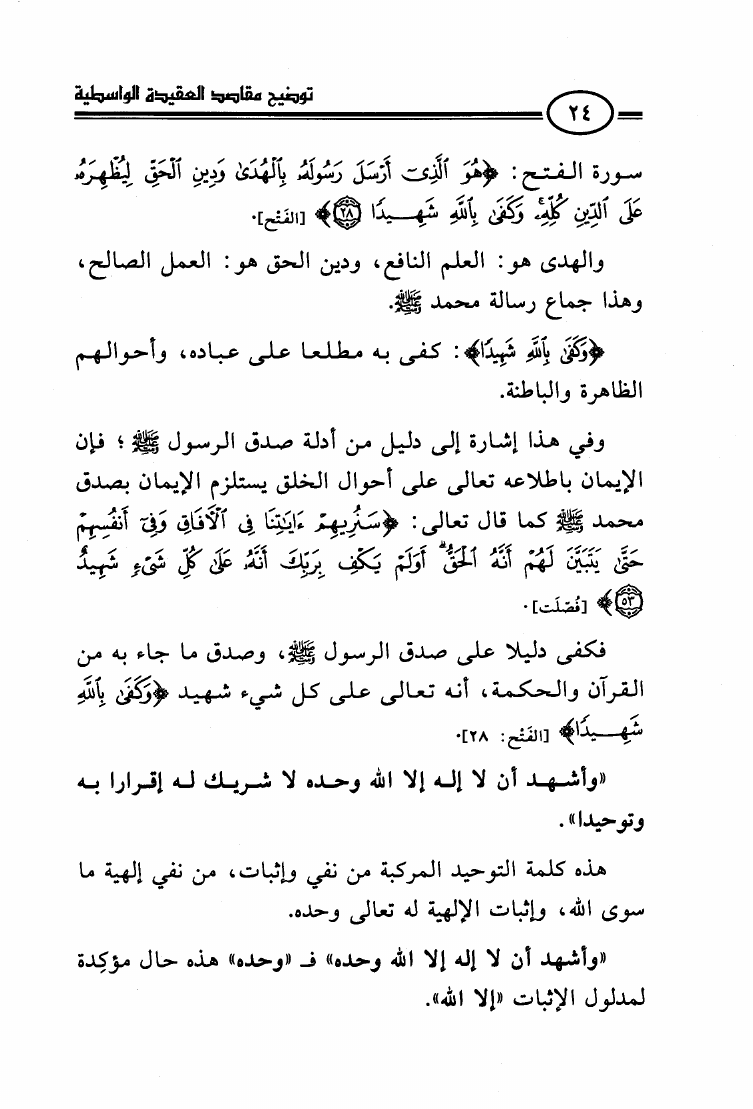 توضيح مقاصد العقيدة الواسطية
٢٤
سورة الفتح: ﴿هُوَ ٱلَّذِىٓ أَرْسَلَ رَسُولَهُۥ بِٱلْهُدَىٰ وَدِينِ ٱلْحَقِّ لِيُظْهِرَهُۥ
عَلَى ٱلدِّينِ كُلِّهِۦۚ وَكَفَىٰ بِٱللَّهِ شَهِيدًا ٢٨﴾ [الفَتْح].
والهدى هو: العلم النافع، ودين الحق هو: العمل الصالح،
وهذا جماع رسالة محمد ﷺ.
﴿وَكَفَىٰ بِٱللَّهِ شَهِيدًا﴾: كفى به مطلعا على عباده، وأحوالهم
الظاهرة والباطنة.
وفي هذا إشارة إلى دليل من أدلة صدق الرسول ﷺ؛ فإن
الإيمان باطلاعه تعالى على أحوال الخلق يستلزم الإيمان بصدق
محمد ﷺ كما قال تعالى: ﴿سَنُرِيهِمْ ءَايَٰتِنَا فِى ٱلْءَافَاقِ وَفِىٓ أَنفُسِهِمْ
حَتَّىٰ يَتَبَيَّنَ لَهُمْ أَنَّهُ ٱلْحَقُّۗ أَوَلَمْ يَكْفِ بِرَبِّكَ أَنَّهُۥ عَلَىٰ كُلِّ شَىْءٍ شَهِيدٌ
٥٣﴾ [فُصّلَت].
فكفى دليلا على صدق الرسول ﷺ، وصدق ما جاء به من
القرآن والحكمة، أنه تعالى على كل شيء شهيد ﴿وَكَفَىٰ بِٱللَّهِ
شَهِيدًا﴾ [الفَتْح: ٢٨].
«وأشهد أن لا إله إلا الله وحده لا شريك له إقرارا به
وتوحيدا».
هذه كلمة التوحيد المركبة من نفي وإثبات، من نفي إلهية ما
سوى الله، وإثبات الإلهية له تعالى وحده.
«وأشهد أن لا إله إلا الله وحده» فـ «وحده» هذه حال مؤكِدة
لمدلول الإثبات «إلا الله».